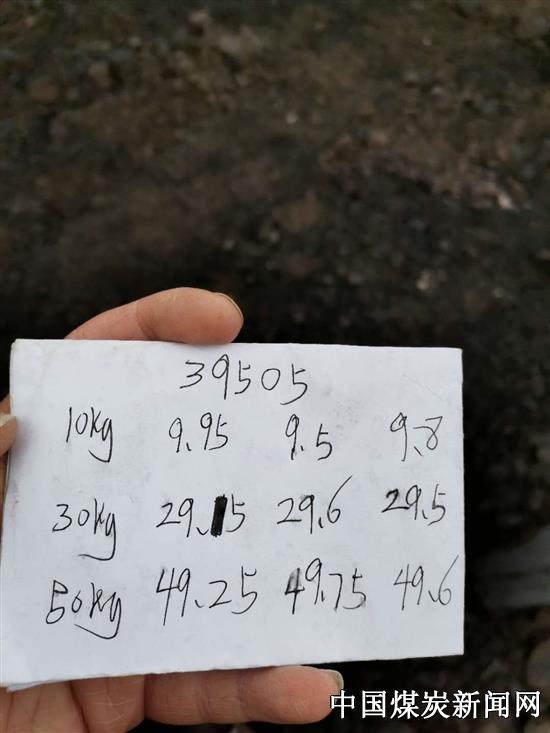 39505
10kg 9.95 9.5 9.8
30kg 29.5 29.6 29.5
50kg 49.25 49.75 49.6
中国煤炭新闻网